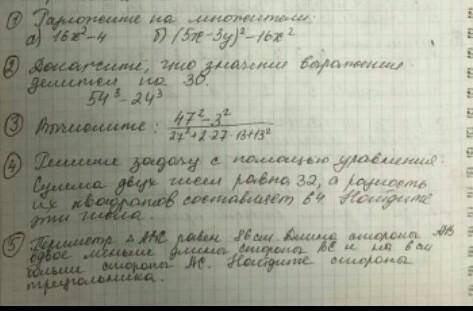 ① Разложите на множители:
а) 16x²-4 б) (5x-3y)²-16x²
② Докажите, что значение выражения
делится на 30.
54³-24³
③ Вычислите: 47²-3² / 27²+2·27·13+13²
④ Решите задачу с помощью уравнения.
Сумма двух чисел равна 32, а разность
их квадратов составляет 64. Найдите
эти числа.
⑤ Периметр △ABC равен 86 см. Длина стороны AB
вдвое меньше длины стороны BC и на 8 см
больше стороны AC. Найдите стороны
треугольника.